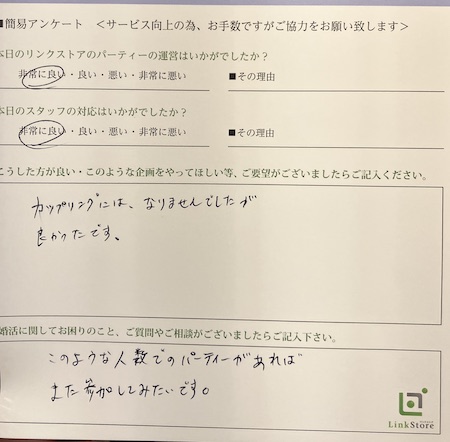 ■簡易アンケート ＜サービス向上の為、お手数ですがご協力をお願い致します＞
本日のリンクストアのパーティーの運営はいかがでしたか？
非常に良い・良い・悪い・非常に悪い ■その理由
本日のスタッフの対応はいかがでしたか？
非常に良い・良い・悪い・非常に悪い ■その理由
こうした方が良い・このような企画をやってほしい等、ご要望がございましたらご記入ください。
カップリングには、なりませんでしたが
良かったです。
婚活に関してお困りのこと、ご質問やご相談がございましたらご記入下さい。
このような人数でのパーティーがあれば
また参加してみたいです。
LinkStore